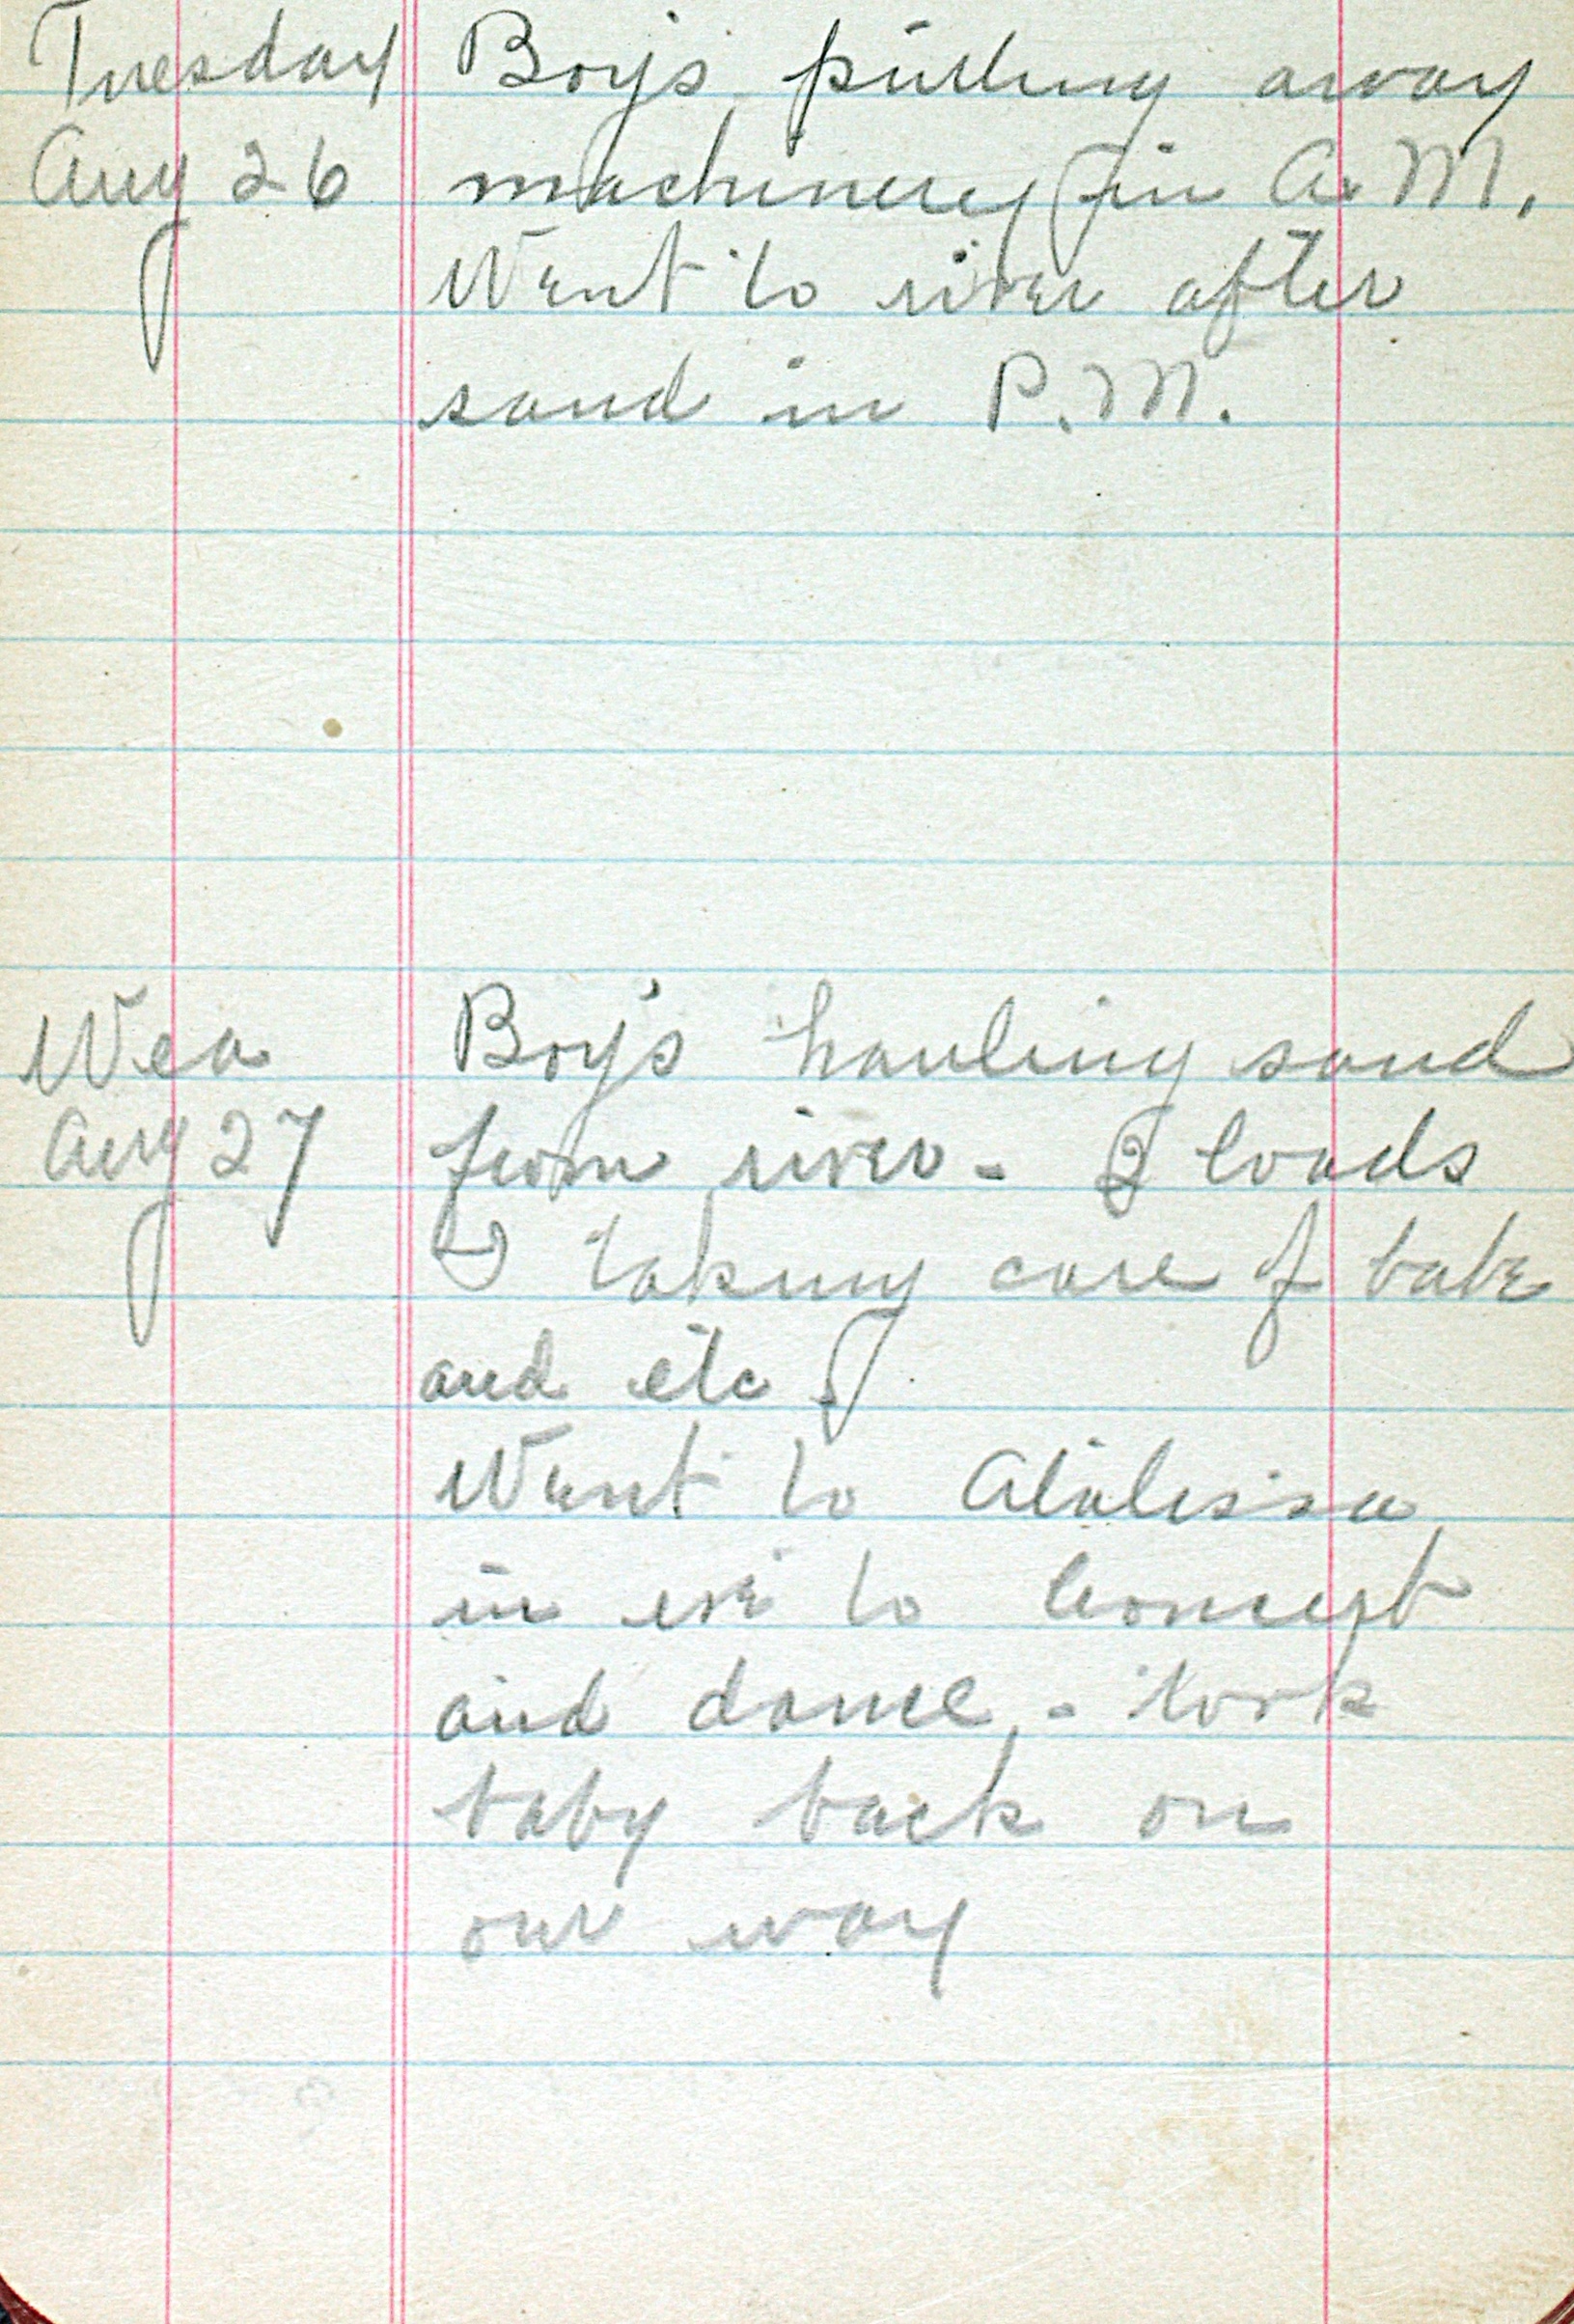 Tuesday Boy's putting away
Aug 26 machinery in A.M.
Went to river after
sand in P.M.
Wed Boy's hauling sand
Aug 27 from river - 2 loads
I taking care of babe
and etc.
Went to Atalissa
in eve to Concert
and dance, - took
baby back on
our way